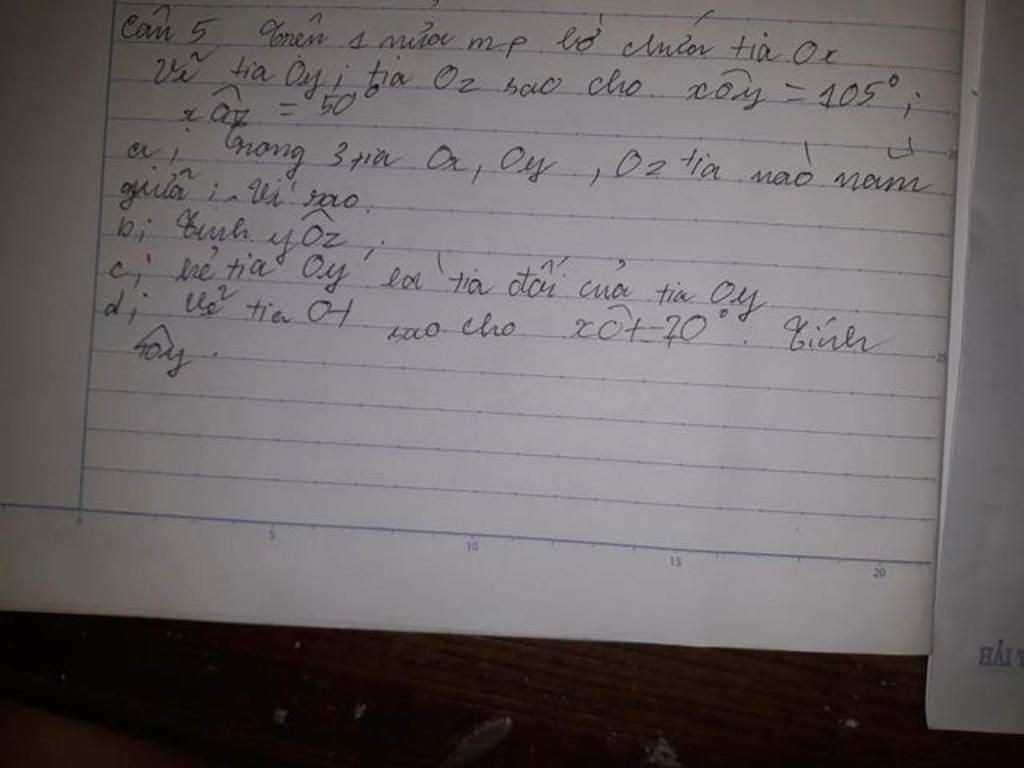 Câu 5 Trên 1 nửa mp bờ chứa tia Ox
Vẽ tia Oy; tia Oz sao cho xÔy = 105°;
xÔz = 50°
a; Trong 3 tia Ox, Oy, Oz tia nào nằm
giữa; Vì sao.
b; Tính yÔz;
c; kẻ tia Oy' là tia đối của tia Oy
d; Vẽ tia Ot sao cho xÔt=70°. Tính
tÔy.
0 5 10 15 20
25
HẢI